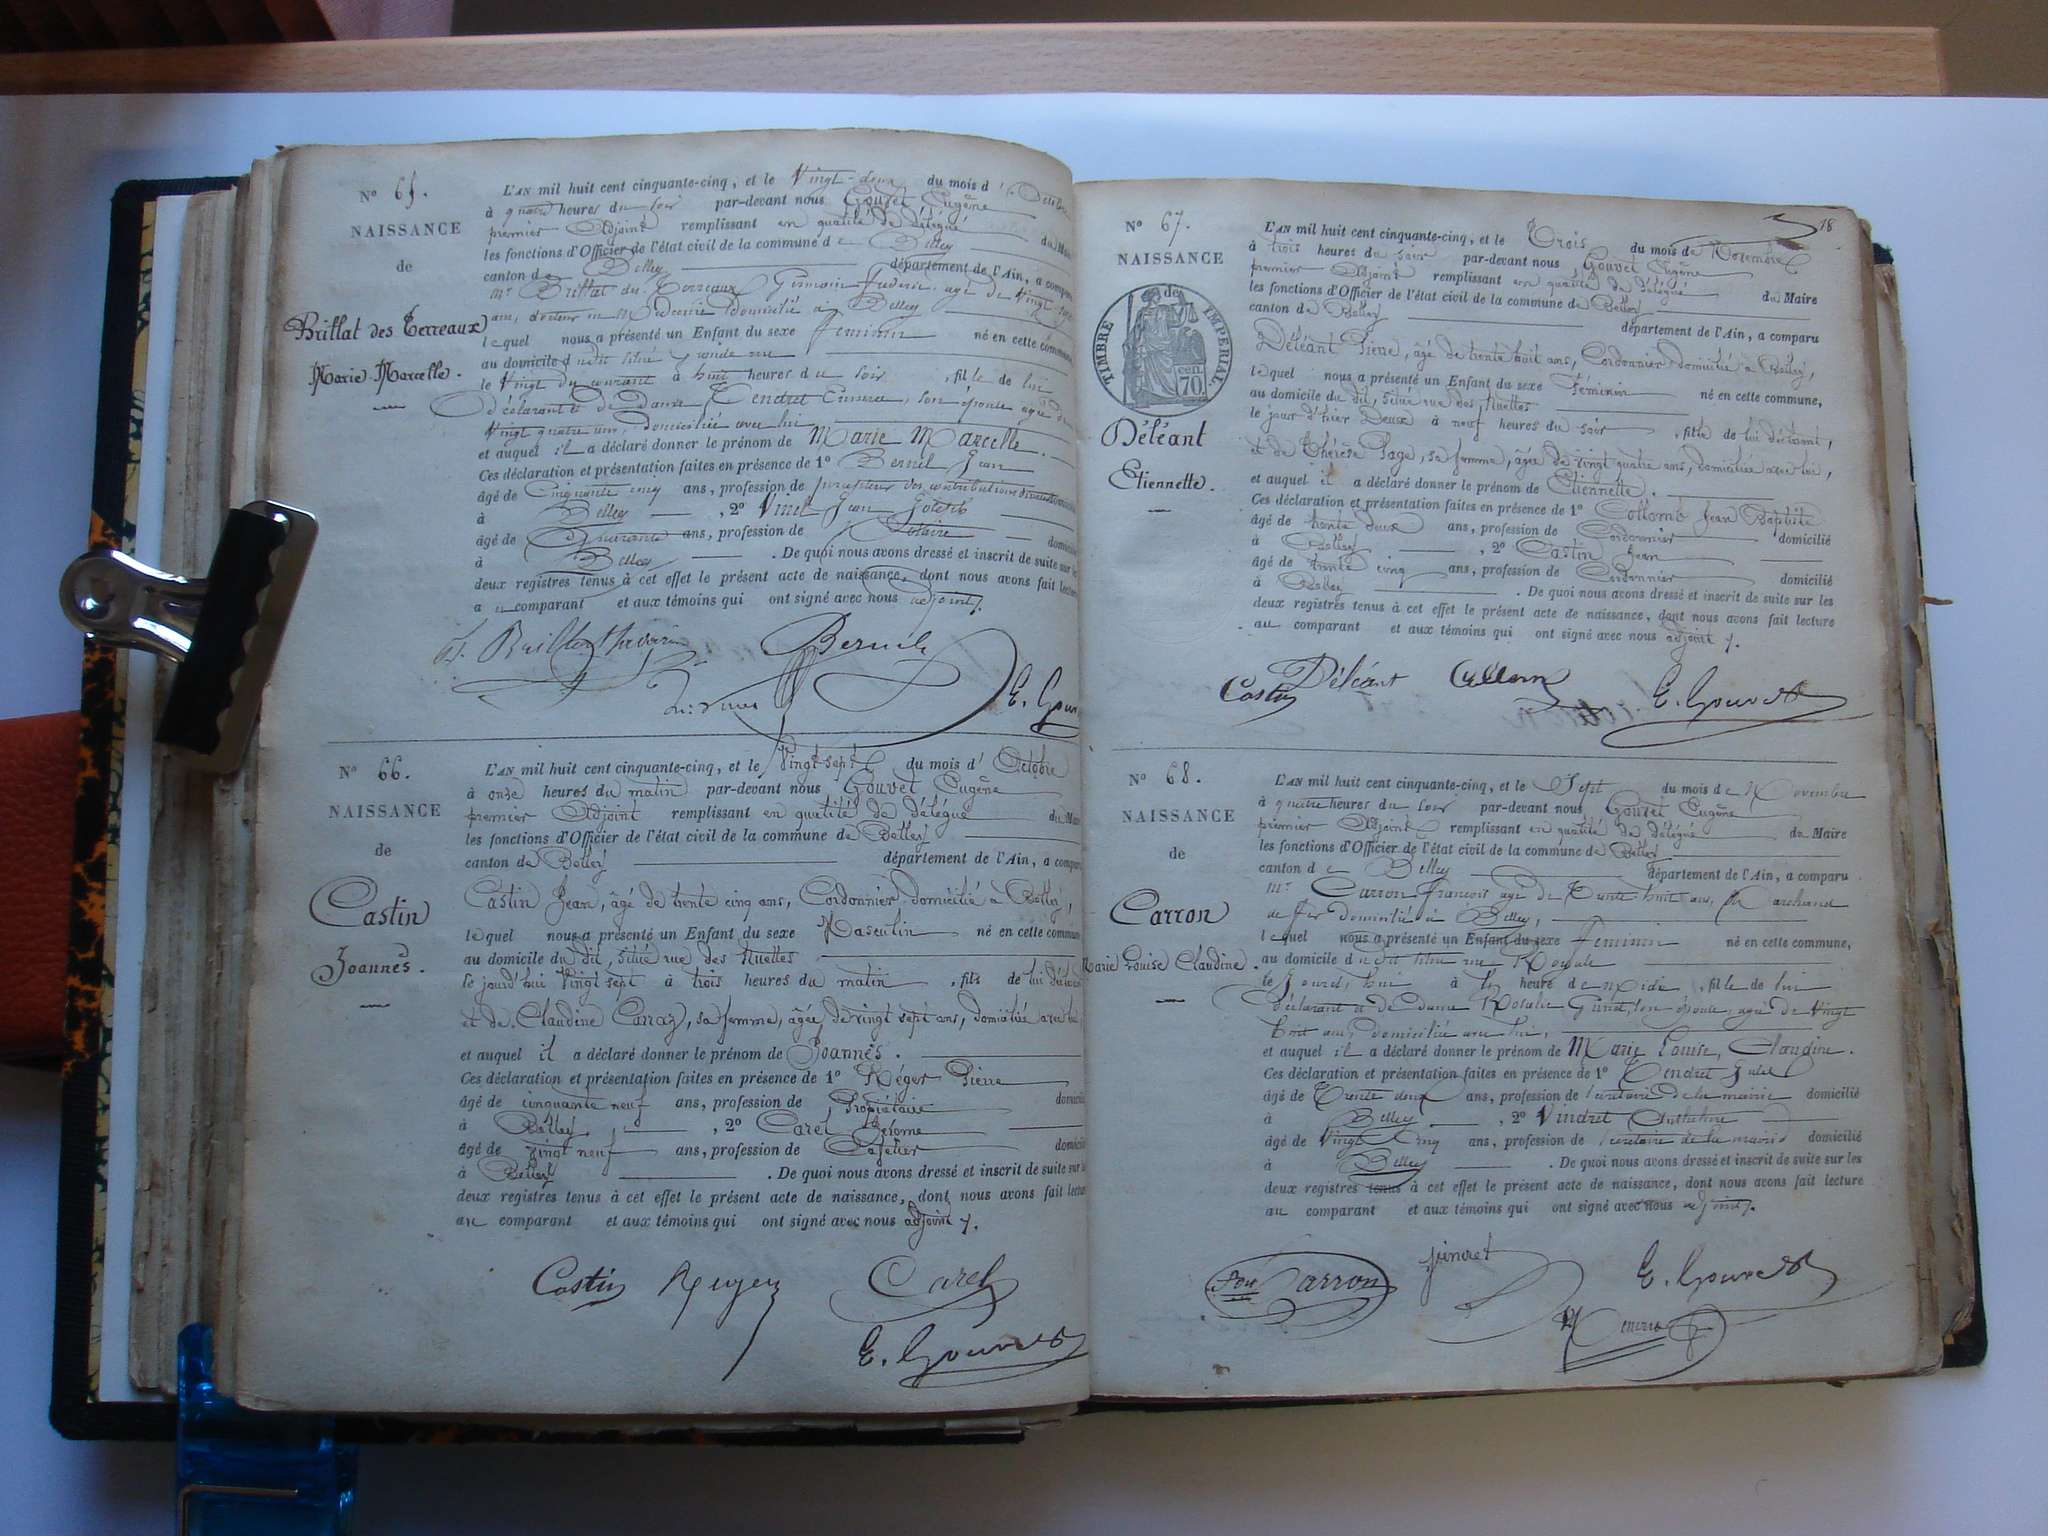 No 65.
NAISSANCE
de
Brillat des Terreaux
Marie Marcelle.
L'AN mil huit cent cinquante-cinq, et le Vingt-deux du mois d'Octobre
à quatre heures du soir par-devant nous Gouvet Eugène
premier Adjoint remplissant en qualité de délégué du Maire
les fonctions d'Officier de l'état civil de la commune de Belley
canton de Belley département de l'Ain, a comparu
Mr Brillat des Terreaux Germain Frédéric, agé de Vingt
ans, docteur en Médecine domicilié à Belley
lequel nous a présenté un Enfant du sexe féminin né en cette commune
au domicile du dit situé
le Vingt du courant à huit heures du soir, fille de lui
déclarant & de dame Tendret Emma, son épouse agée de
Vingt quatre ans, domiciliée avec lui
et auquel il a déclaré donner le prénom de Marie Marcelle.
Ces déclaration et présentation faites en présence de 1º Bernel Jean
âgé de Cinquante cinq ans, profession de percepteur des contributions directes
à Belley, 2º Vinel Jean Joseph
âgé de Quarante ans, profession de Notaire domicilié
à Belley. De quoi nous avons dressé et inscrit de suite sur les
deux registres tenus à cet effet le présent acte de naissance, dont nous avons fait lecture
au comparant et aux témoins qui ont signé avec nous adjoint.
E. Gouvet
No 66.
NAISSANCE
de
Castin
Joannès.
L'AN mil huit cent cinquante-cinq, et le Vingt-sept du mois d'Octobre
à onze heures du matin par-devant nous Gouvet Eugène
premier Adjoint remplissant en qualité de délégué du Maire
les fonctions d'Officier de l'état civil de la commune de Belley
canton de Belley département de l'Ain, a comparu
Castin Jean, âgé de trente cinq ans, Cordonnier domicilié à Belley,
lequel nous a présenté un Enfant du sexe Masculin né en cette commune
au domicile du dit, situé rue des Ruelles
le jourd'hui Vingt sept à trois heures du matin, fils de lui déclarant
et de Claudine Canaz, sa femme, âgée de vingt sept ans, domiciliée avec lui,
et auquel il a déclaré donner le prénom de Joannès.
Ces déclaration et présentation faites en présence de 1º Réger Pierre
âgé de cinquante neuf ans, profession de Propriétaire domicilié
à Belley, 2º Carel Jérome
âgé de vingt neuf ans, profession de Cafetier domicilié
à Belley. De quoi nous avons dressé et inscrit de suite sur les
deux registres tenus à cet effet le présent acte de naissance, dont nous avons fait lecture
au comparant et aux témoins qui ont signé avec nous adjoint.
Castin Carel
E. Gouvet
18
No 67.
NAISSANCE
TIMBRE IMPERIAL
de
70 cen
Déléant
Etiennette.
L'AN mil huit cent cinquante-cinq, et le Trois du mois de Novembre
à trois heures du soir par-devant nous, Gouvet Eugène
premier Adjoint remplissant en qualité de délégué du Maire
les fonctions d'Officier de l'état civil de la commune de Belley
canton de Belley département de l'Ain, a comparu
Déléant Pierre, âgé de trente huit ans, Cordonnier domicilié à Belley,
lequel nous a présenté un Enfant du sexe féminin né en cette commune,
au domicile du dit, situé rue des Ruelles
le jour d'hier Deux à neuf heures du soir, fille de lui déclarant,
et de Thérèse Page, sa femme, âgée de vingt quatre ans, domiciliée avec lui,
et auquel il a déclaré donner le prénom de Etiennette.
Ces déclaration et présentation faites en présence de 1º Collomb Jean Baptiste
âgé de trente deux ans, profession de Cordonnier domicilié
à Belley, 2º Castin Jean
âgé de trente cinq ans, profession de Cordonnier domicilié
à Belley. De quoi nous avons dressé et inscrit de suite sur les
deux registres tenus à cet effet le présent acte de naissance, dont nous avons fait lecture
au comparant et aux témoins qui ont signé avec nous adjoint.
Castin Déléant E. Gouvet
No 68.
NAISSANCE
de
Carron
Marie Louise Claudine.
L'AN mil huit cent cinquante-cinq, et le Sept du mois de Novembre
à quatre heures du soir par-devant nous Gouvet Eugène
premier Adjoint remplissant en qualité de délégué du Maire
les fonctions d'Officier de l'état civil de la commune de Belley
canton de Belley département de l'Ain, a comparu
Mr Carron françois agé de Trente huit ans, Marchand
de fer domicilié à Belley,
lequel nous a présenté un Enfant du sexe féminin né en cette commune,
au domicile du dit situé rue Royale
le Jourd'hui à heure de midi, fille de lui
déclarant et de dame Rosalie son épouse, agée de Vingt
huit ans, domiciliée avec lui,
et auquel il a déclaré donner le prénom de Marie Louise, Claudine.
Ces déclaration et présentation faites en présence de 1º Tendret Jules
âgé de Trente deux ans, profession de secrétaire de la mairie domicilié
à Belley, 2º Vindret Anthelme
âgé de Vingt cinq ans, profession de secrétaire de la mairie domicilié
à Belley. De quoi nous avons dressé et inscrit de suite sur les
deux registres tenus à cet effet le présent acte de naissance, dont nous avons fait lecture
au comparant et aux témoins qui ont signé avec nous adjoint.
Carron E. Gouvet